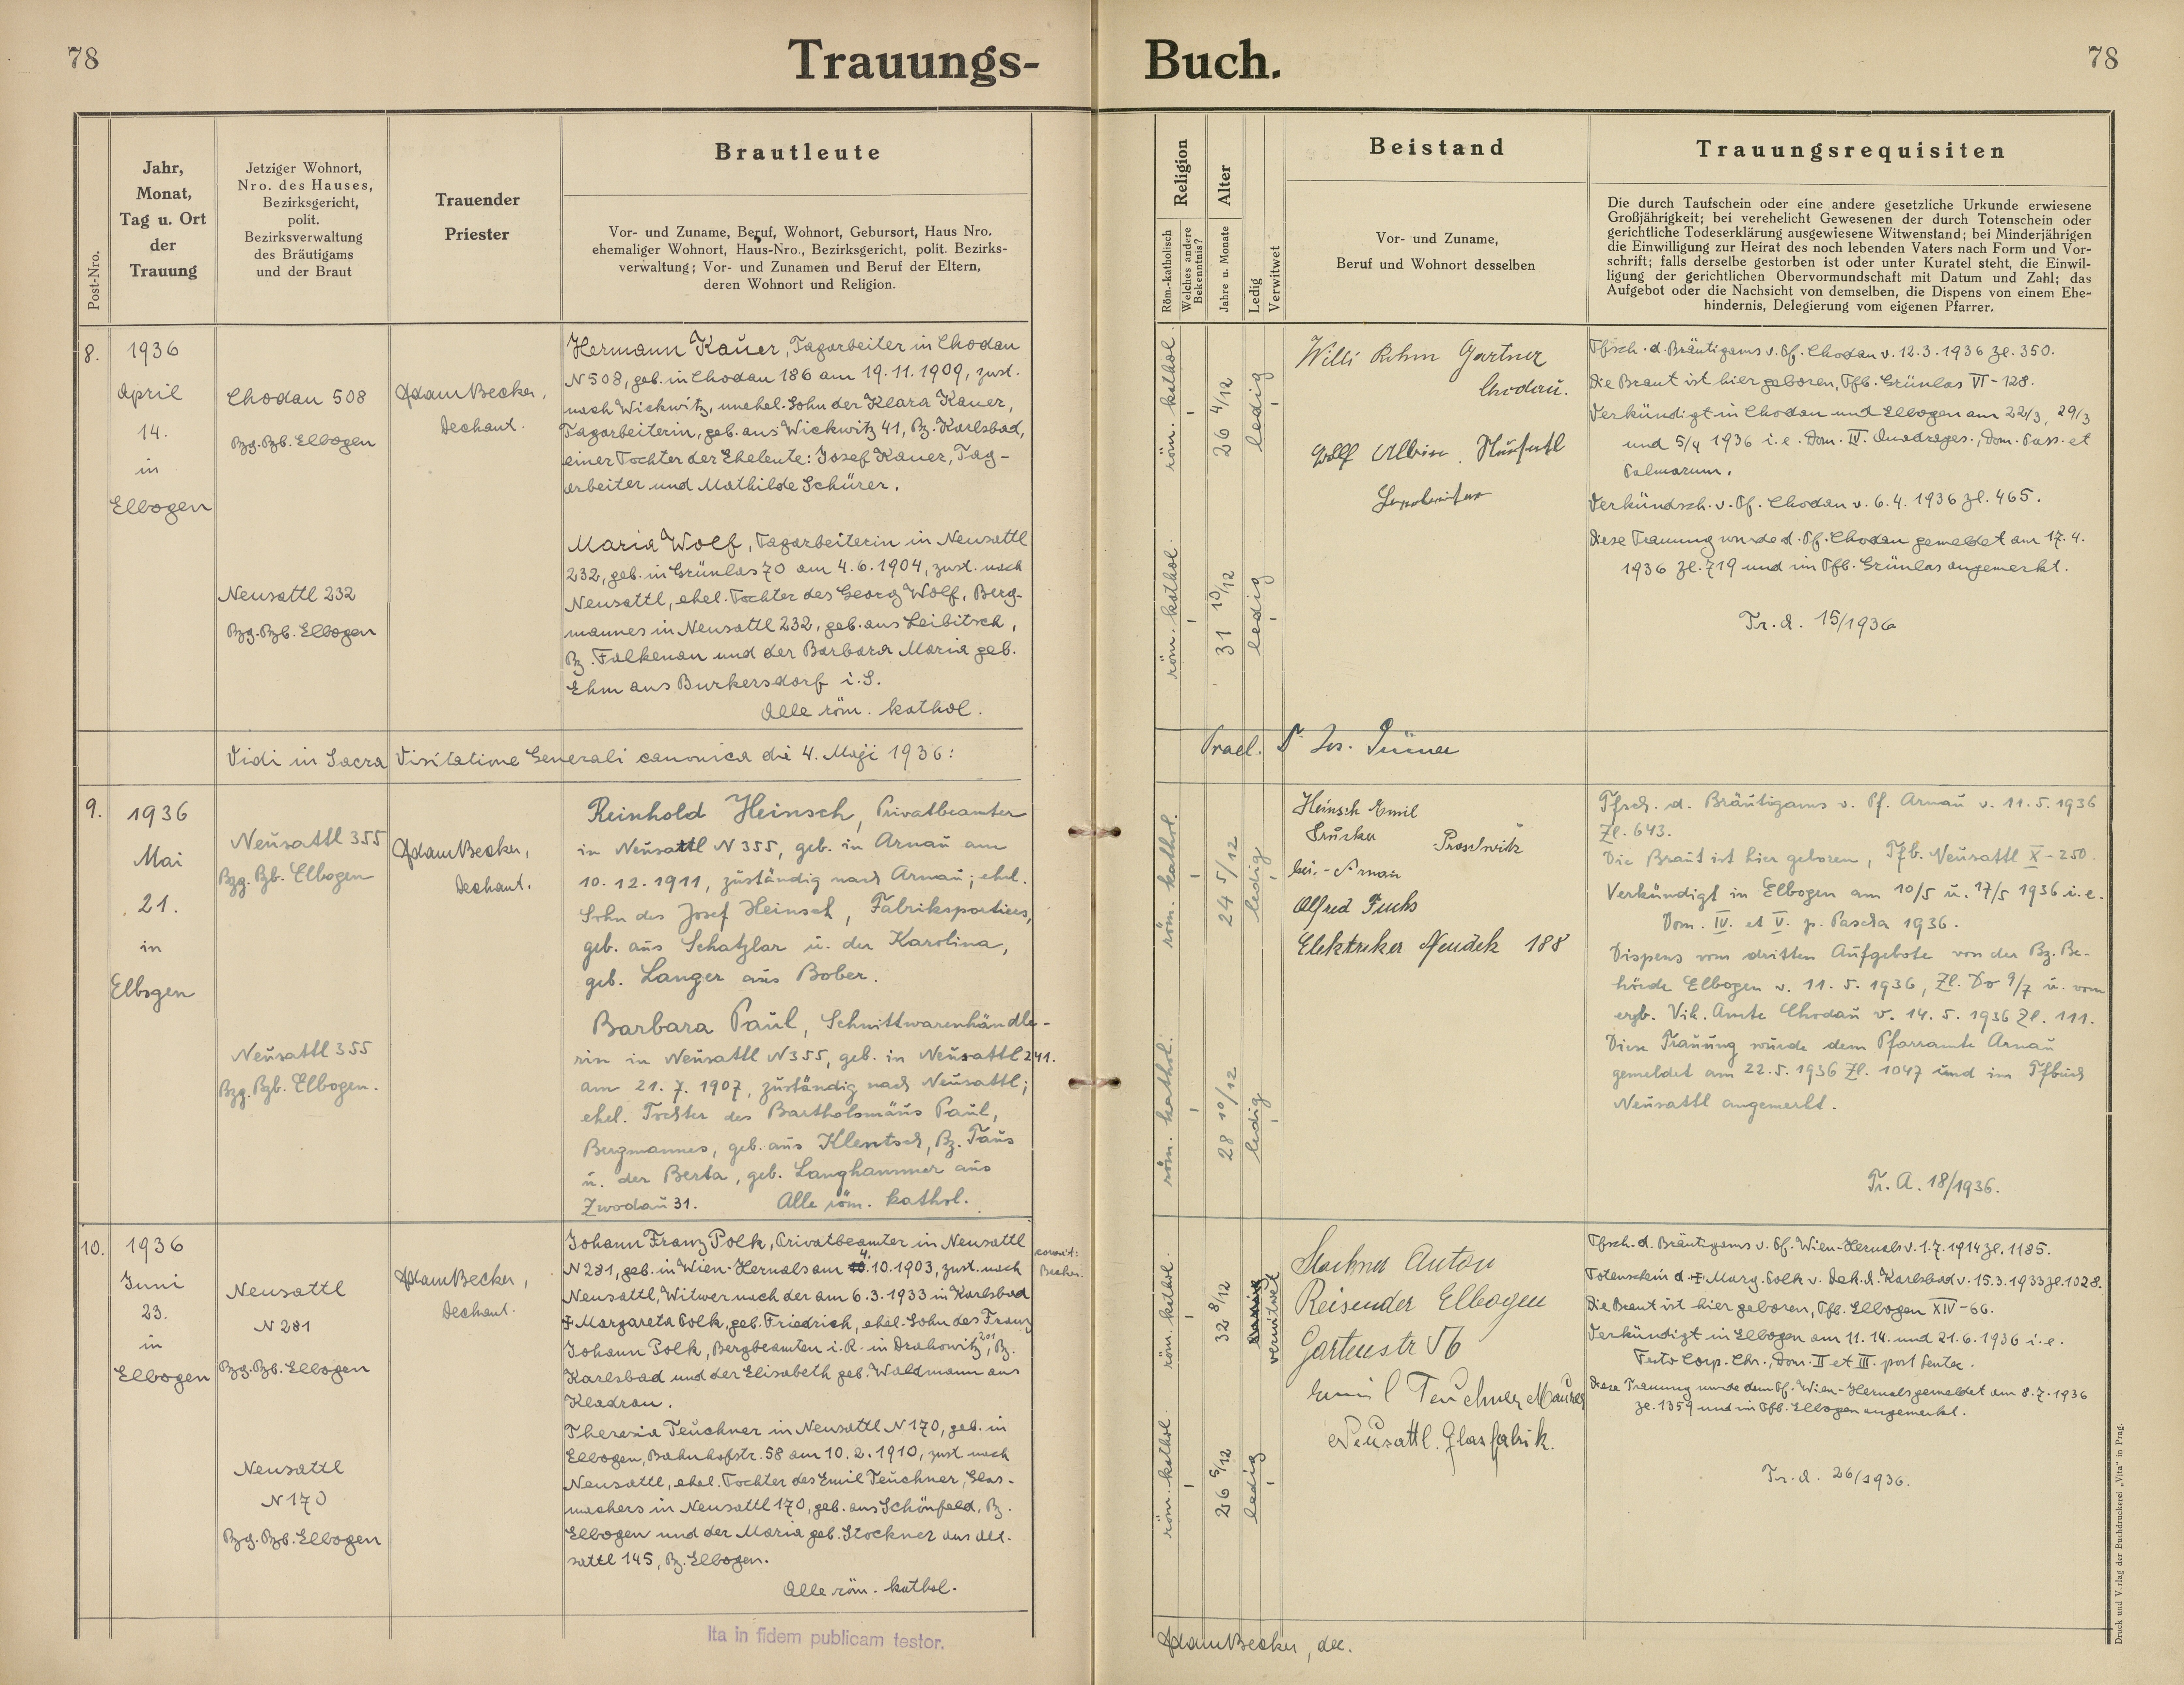 78
Trauungs-
Buch.
78
Post-Nro.
Jahr,
Monat,
Tag u. Ort
der
Trauung
Jetziger Wohnort,
Nro. des Hauses,
Bezirksgericht,
polit.
Bezirksverwaltung
des Bräutigams
und der Braut
Trauender
Priester
Brautleute
Vor- und Zuname, Beruf, Wohnort, Geburtsort, Haus Nro.
ehemaliger Wohnort, Haus-Nro., Bezirksgericht, polit. Bezirks-
verwaltung; Vor- und Zunamen und Beruf der Eltern,
deren Wohnort und Religion.
Religion
Röm.-katholisch
Welches andere
Bekenntnis?
Alter
Jahre u. Monate
Ledig
Verwitwet
Beistand
Vor- und Zuname,
Beruf und Wohnort desselben
Trauungsrequisiten
Die durch Taufschein oder eine andere gesetzliche Urkunde erwiesene
Großjährigkeit; bei verehelicht Gewesenen der durch Totenschein oder
gerichtliche Todeserklärung ausgewiesene Witwenstand; bei Minderjährigen
die Einwilligung zur Heirat des noch lebenden Vaters nach Form und Vor-
schrift; falls derselbe gestorben ist oder unter Kuratel steht, die Einwil-
ligung der gerichtlichen Obervormundschaft mit Datum und Zahl; das
Aufgebot oder die Nachsicht von demselben, die Dispens von einem Ehe-
hindernis, Delegierung vom eigenen Pfarrer.
8.
1936
April
14.
in
Elbogen
Chodau 508
Bzg. Bzb. Elbogen
Neusattl 232
Bzg. Bzb. Elbogen
Adam Becker,
Dechant.
Hermann Kauer, Tagarbeiter in Chodau
N 508, geb. in Chodau 186 am 19.11.1909, zust.
nach Wickwitz, unehel. Sohn der Klara Kauer,
Tagarbeiterin, geb. aus Wickwitz 41, Bz. Karlsbad,
einer Tochter der Eheleute: Josef Kauer, Tag-
arbeiter und Mathilde Schürer.
Maria Wolf, Tagarbeiterin in Neusattl
232, geb. in Grünlas 70 am 4.6.1904, zust. nach
Neusattl, ehel. Tochter des Georg Wolf, Berg-
mannes in Neusattl 232, geb. aus Leibitsch,
Bz. Falkenau und der Barbara Maria geb.
Ehm aus Burkersdorf i. S.
Alle röm. kathol.
röm. kathol.
26 4/12
ledig
röm. kathol.
31 10/12
ledig
Willi Rohm Gärtner
Chodau.
Wolf Albin Neusattl
Tfsch. d. Bräutigams v. Pf. Chodau v. 12.3.1936 Zl. 350.
Die Braut ist hier geboren, Tfb. Grünlas VI - 128.
Verkündigt in Chodau und Elbogen am 22/3, 29/3
und 5/4 1936 i. e. Dom. IV. Quadrages., Dom. Pass. et
Palmarum.
Verkündsch. v. Pf. Chodau v. 6.4.1936 Zl. 465.
Diese Trauung wurde d. Pf. Chodau gemeldet am 17.4.
1936 Zl. 719 und im Tfb. Grünlas angemerkt.
Tr. A. 15/1936
Vidi in Sacra Visitatione Generali canonica die 4. Maji 1936:
Prael. Dr Jos.
9.
1936
Mai
21.
in
Elbogen
Neusattl 355
Bzg. Bzb. Elbogen
Neusattl 355
Bzg. Bzb. Elbogen.
Adam Becker,
Dechant.
Reinhold Heinsch, Privatbeamter
in Neusattl N 355, geb. in Arnau am
10.12.1911, zuständig nach Arnau; ehel.
Sohn des Josef Heinsch, Fabriksportiers,
geb. aus Schatzlar u. der Karolina,
geb. Langer aus Bober.
Barbara Paul, Schnittwarenhändle-
rin in Neusattl N 355, geb. in Neusattl 241.
am 21.7.1907, zuständig nach Neusattl;
ehel. Tochter des Bartholomäus Paul,
Bergmannes, geb. aus Klentsch, Bz. Taus
u. der Berta, geb. Langhammer aus
Zwodau 31. Alle röm. kathol.
röm. kathol.
24 5/12
ledig
röm. kathol.
28 10/12
ledig
Heinsch Emil
Drucker Proschwitz
bei - Arnau
Alfred Fuchs
Elektriker Neudek 188
Tfsch. d. Bräutigams v. Pf. Arnau v. 11.5.1936
Zl. 643.
Die Braut ist hier geboren, Tfb. Neusattl X - 250.
Verkündigt in Elbogen am 10/5 u. 17/5 1936 i. e.
Dom. IV. et V. p. Pascha 1936.
Dispens vom dritten Aufgebote von der Bz. Be-
hörde Elbogen v. 11.5.1936, Zl. Do 9/7 u. vom
erzb. Vik. Amte Chodau v. 14.5.1936 Zl. 111.
Diese Trauung wurde dem Pfarramte Arnau
gemeldet am 22.5.1936 Zl. 1047 und im Tfbuch
Neusattl angemerkt.
Tr. A. 18/1936.
10.
1936
Juni
23.
in
Elbogen
Neusattl
N 281
Bzg. Bzb. Elbogen
Neusattl
N 170
Bzg. Bzb. Elbogen
Adam Becker,
Dechant.
Johann Franz Polk, Privatbeamter in Neusattl
N 281, geb. in Wien-Hernals am 4. 10.1903, zust. nach
Neusattl, Witwer nach der am 6.3.1933 in Karlsbad
† Margareta Polk, geb. Friedrich, ehel. Sohn des Franz
Johann Polk, Bergbeamten i. R. in Drahowitz 201, Bz.
Karlsbad und der Elisabeth geb. Waldmann aus
Kladrau.
Theresia Teuchner in Neusattl N 170, geb. in
Elbogen, Bahnhofstr. 58 am 10.2.1910, zust. nach
Neusattl, ehel. Tochter des Emil Teuchner, Glas-
machers in Neusattl 170, geb. aus Schönfeld, Bz.
Elbogen und der Maria geb. Stockner aus Alt-
sattl 145, Bz. Elbogen.
Alle röm. kathol.
Becker.
röm. kathol.
32 8/12
verwitwet
röm. kathol.
26 5/12
ledig
Stockner Anton
Reisender Elbogen
Gartenstr 56
Emil Teuchner
Neusattl. Glasfabrik.
Tfsch. d. Bräutigams v. Pf. Wien-Hernals v. 1.7.1914 Zl. 1185.
Totenschein d. † Marg. Polk v. Dek. A. Karlsbad v. 15.3.1933 Zl. 1028.
Die Braut ist hier geboren, Tfb. Elbogen XIV - 66.
Verkündigt in Elbogen am 11. 14. und 21.6.1936 i. e.
Festo Corp. Chr., Dom. II et III. post Pentec.
Diese Trauung wurde dem Pf. Wien-Hernals gemeldet am 8.7.1936
Zl. 1359 und im Tfb. Elbogen angemerkt.
Tr. A. 26/1936.
Ita in fidem publicam testor.
Adam Becker, dec.
Druck und Verlag der Buchdruckerei „Vita" in Prag.